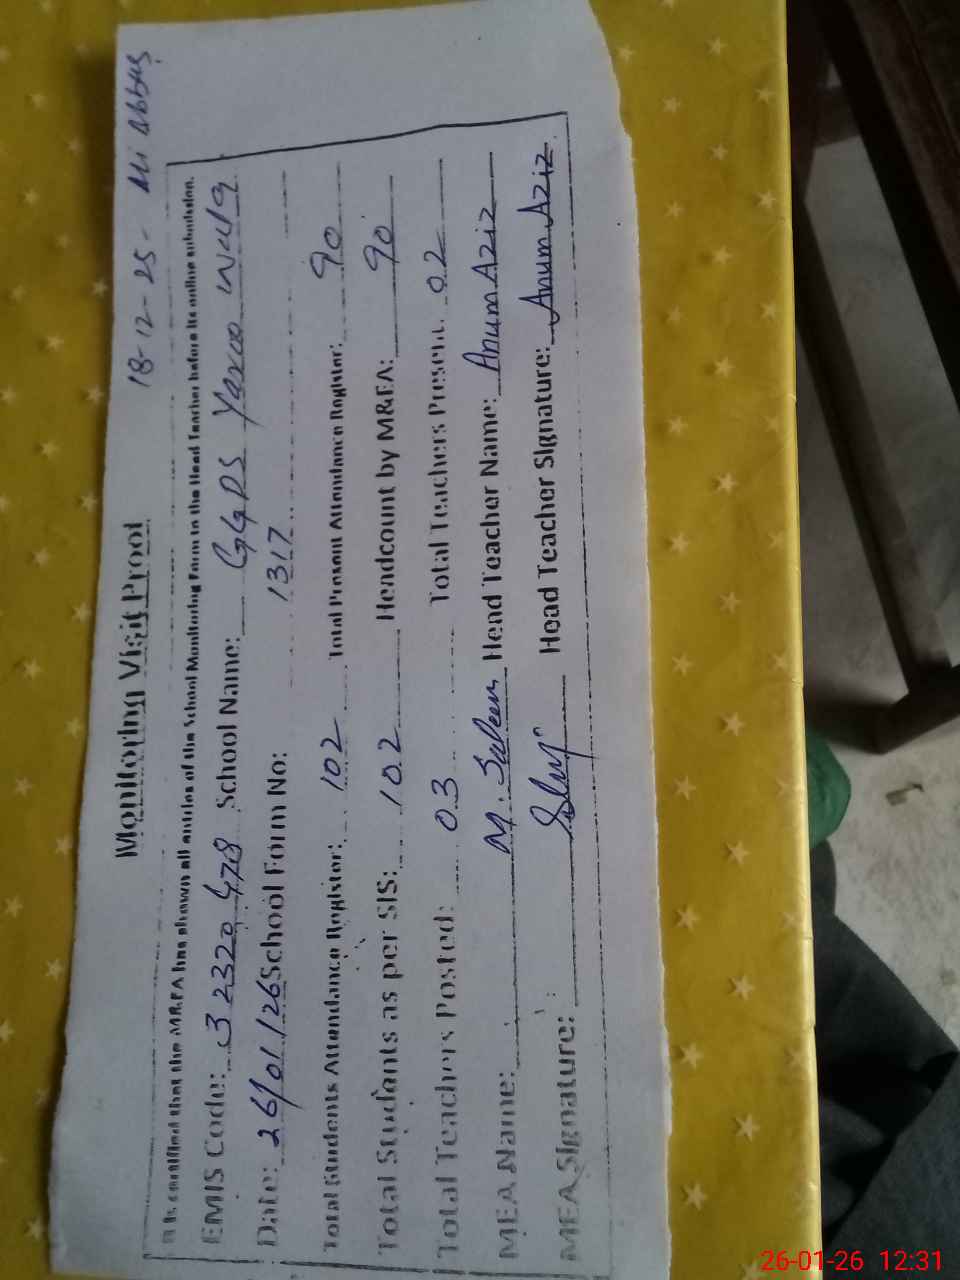 18-12-25 - Ali Abbas
Monitoring Visit Proof
It is certified that the M&EA has shown all entries of the School Monitoring Form to the Head Teacher before its online submission.
EMIS Code: 32320478 School Name: GGPS Yaroo wala
Date: 26/01/26 School Form No: 1317
Total Students Attendance Register: 102 Total Present Attendance Register: 90
Total Students as per SIS: 102 Headcount by M&EA: 90
Total Teachers Posted: 03 Total Teachers Present: 02
MEA Name: M. Saleem Head Teacher Name: Anum Aziz
MEA Signature: Head Teacher Signature: Anum Aziz
26-01-26 12:31